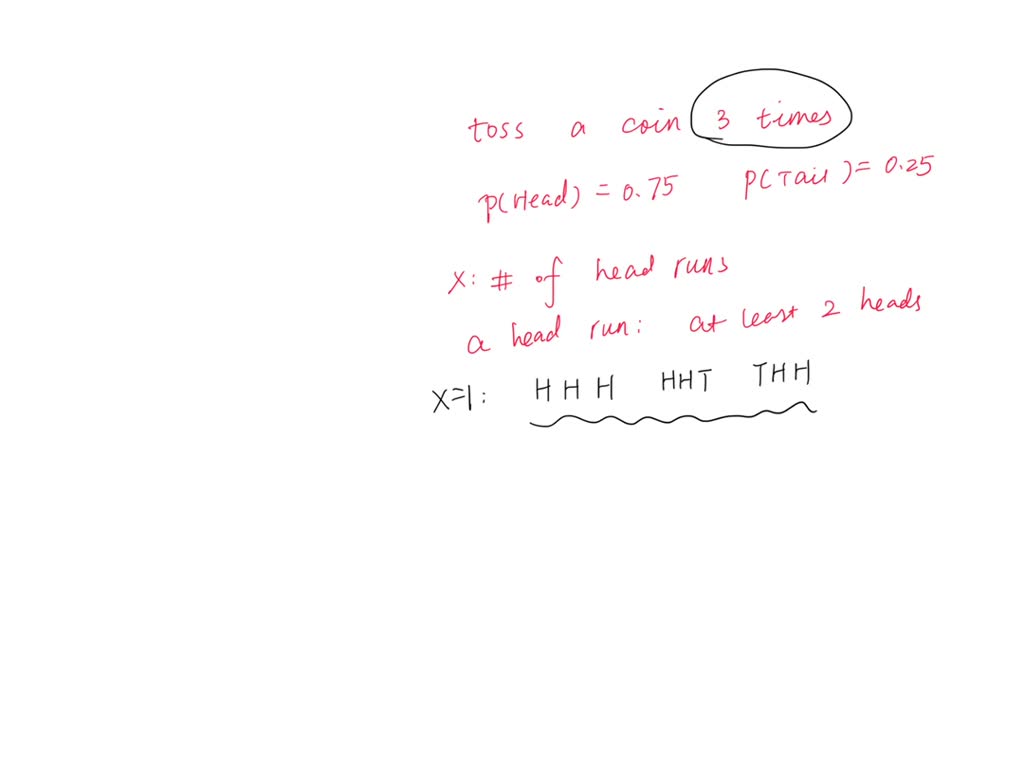 toss a coin 3 times
p(Head) = 0.75 p(Tail) = 0.25
X: # of head runs
a head run: at least 2 heads
X=1: H H H HHT THH